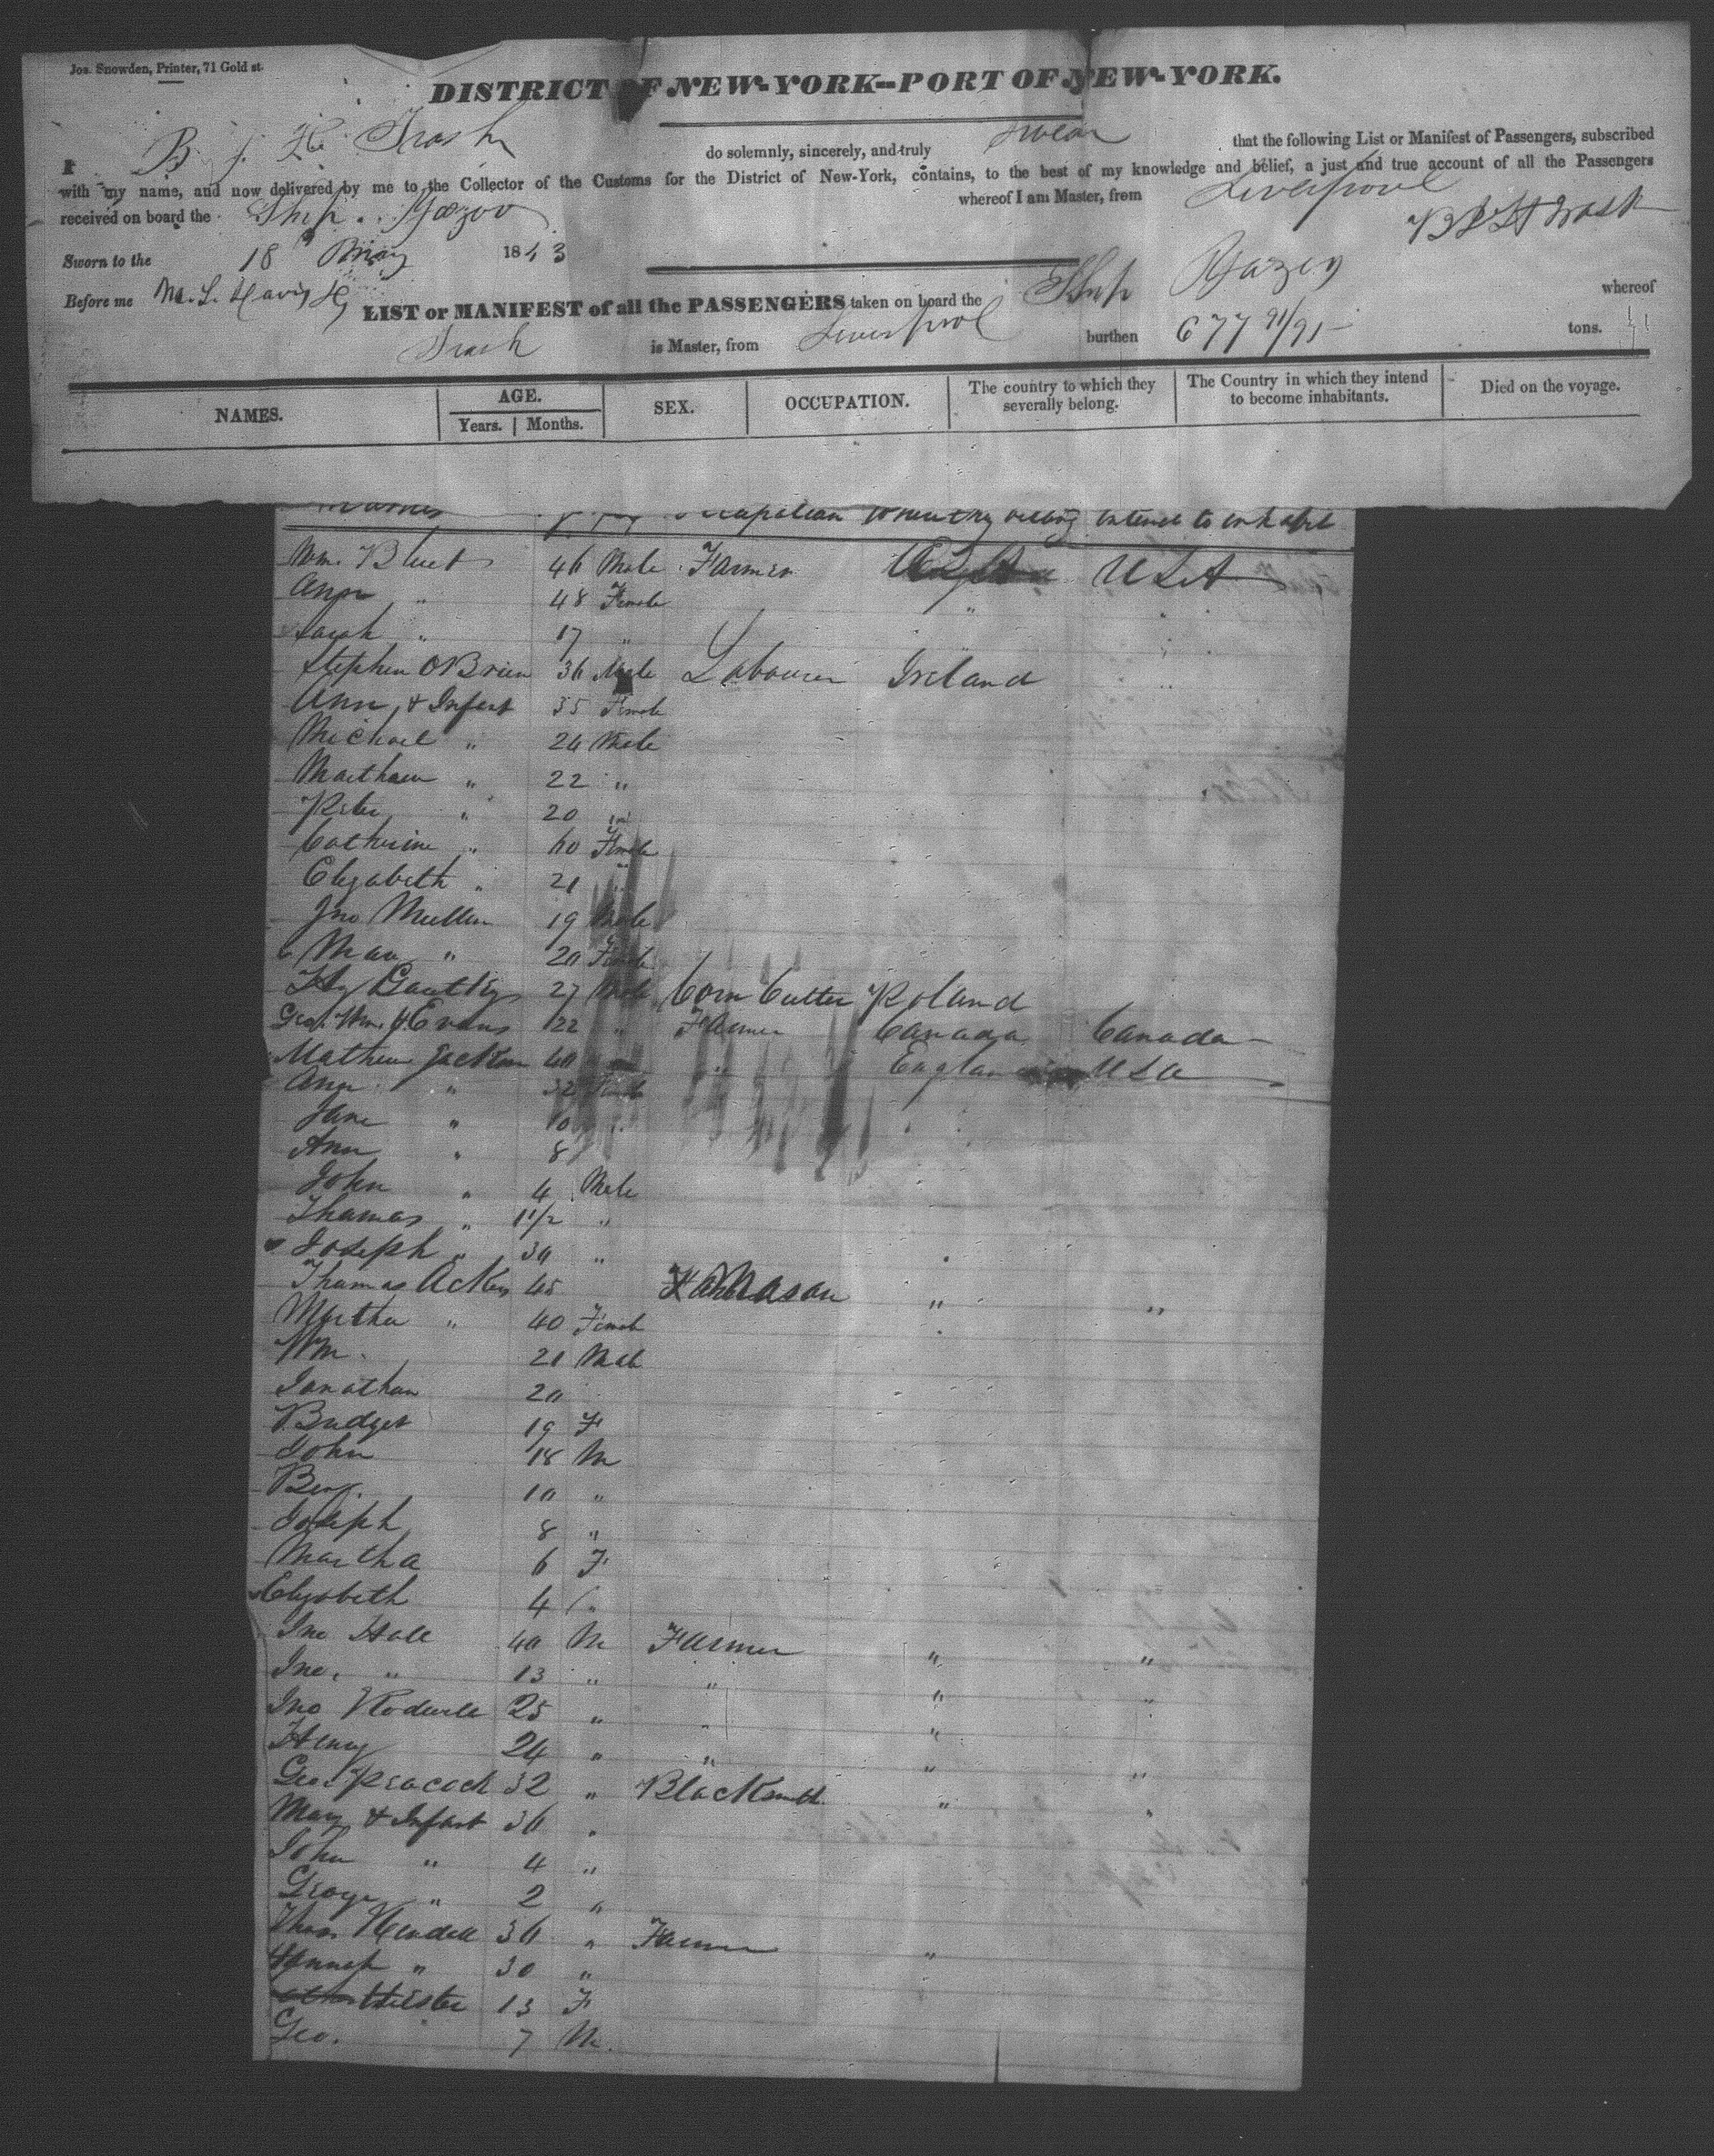 Jos. Snowden, Printer, 71 Gold st.
DISTRICT OF NEW-YORK--PORT OF NEW-YORK.
I B. J. H. Trask do solemnly, sincerely, and truly swear that the following List or Manifest of Passengers, subscribed
with my name, and now delivered by me to the Collector of the Customs for the District of New-York, contains, to the best of my knowledge and belief, a just and true account of all the Passengers
received on board the Ship Yazoo whereof I am Master, from Liverpool
B J H Trask
Sworn to the 18 May 1843
Before me M. L. Davis
LIST or MANIFEST of all the PASSENGERS taken on board the Ship Yazoo whereof
Trask is Master, from Liverpool burthen 677 91/95 tons.
NAMES. AGE. Years. Months. SEX. OCCUPATION. The country to which they severally belong. The Country in which they intend to become inhabitants. Died on the voyage.
Names Occupation Country belong intend to inhabit
Wm. Bluet 46 Male Farmer USA
Ann " 48 Female "
Sarah " 17 "
Stephen OBrien 36 Male Labourer Ireland
Ann, & Infant 35 Female
Michael " 24 Male
Mathew " 22 "
Peter " 20 "
Catherine " 60 Female
Elizabeth " 21 "
Jno Mullen 19 Male
Mary " 20 Female
Hy 27 Male Corn Cutter Poland
Geo. Wm. Evans 22 " Farmer Canada Canada
Mathew Jackson 40 " England USA
Ann " 32 Female
Jane " 10 "
Ann " 8
John " 4 Male
Thomas " 1 1/2 "
Joseph " 30 "
Thomas Ackers 45 Mason " "
Martha " 40 Female
Wm. 21 Male
Jonathan 20
Bridget 19 F
John 18 M
Benj. 10 "
Joseph 8 "
Martha 6 F
Elizabeth 4 "
Jno Hall 40 M Farmer " "
Jno. " 13 " " " "
Jno Rodwell 25 " " "
Henry 24 " " " "
Geo. Peacock 32 " Blacksmith " "
Mary & Infant 36 "
John " 4 "
George " 2 "
Thos Kendell 36 " Farmer "
Hannah " 30 "
Hester 13 F
Geo. 7 M.